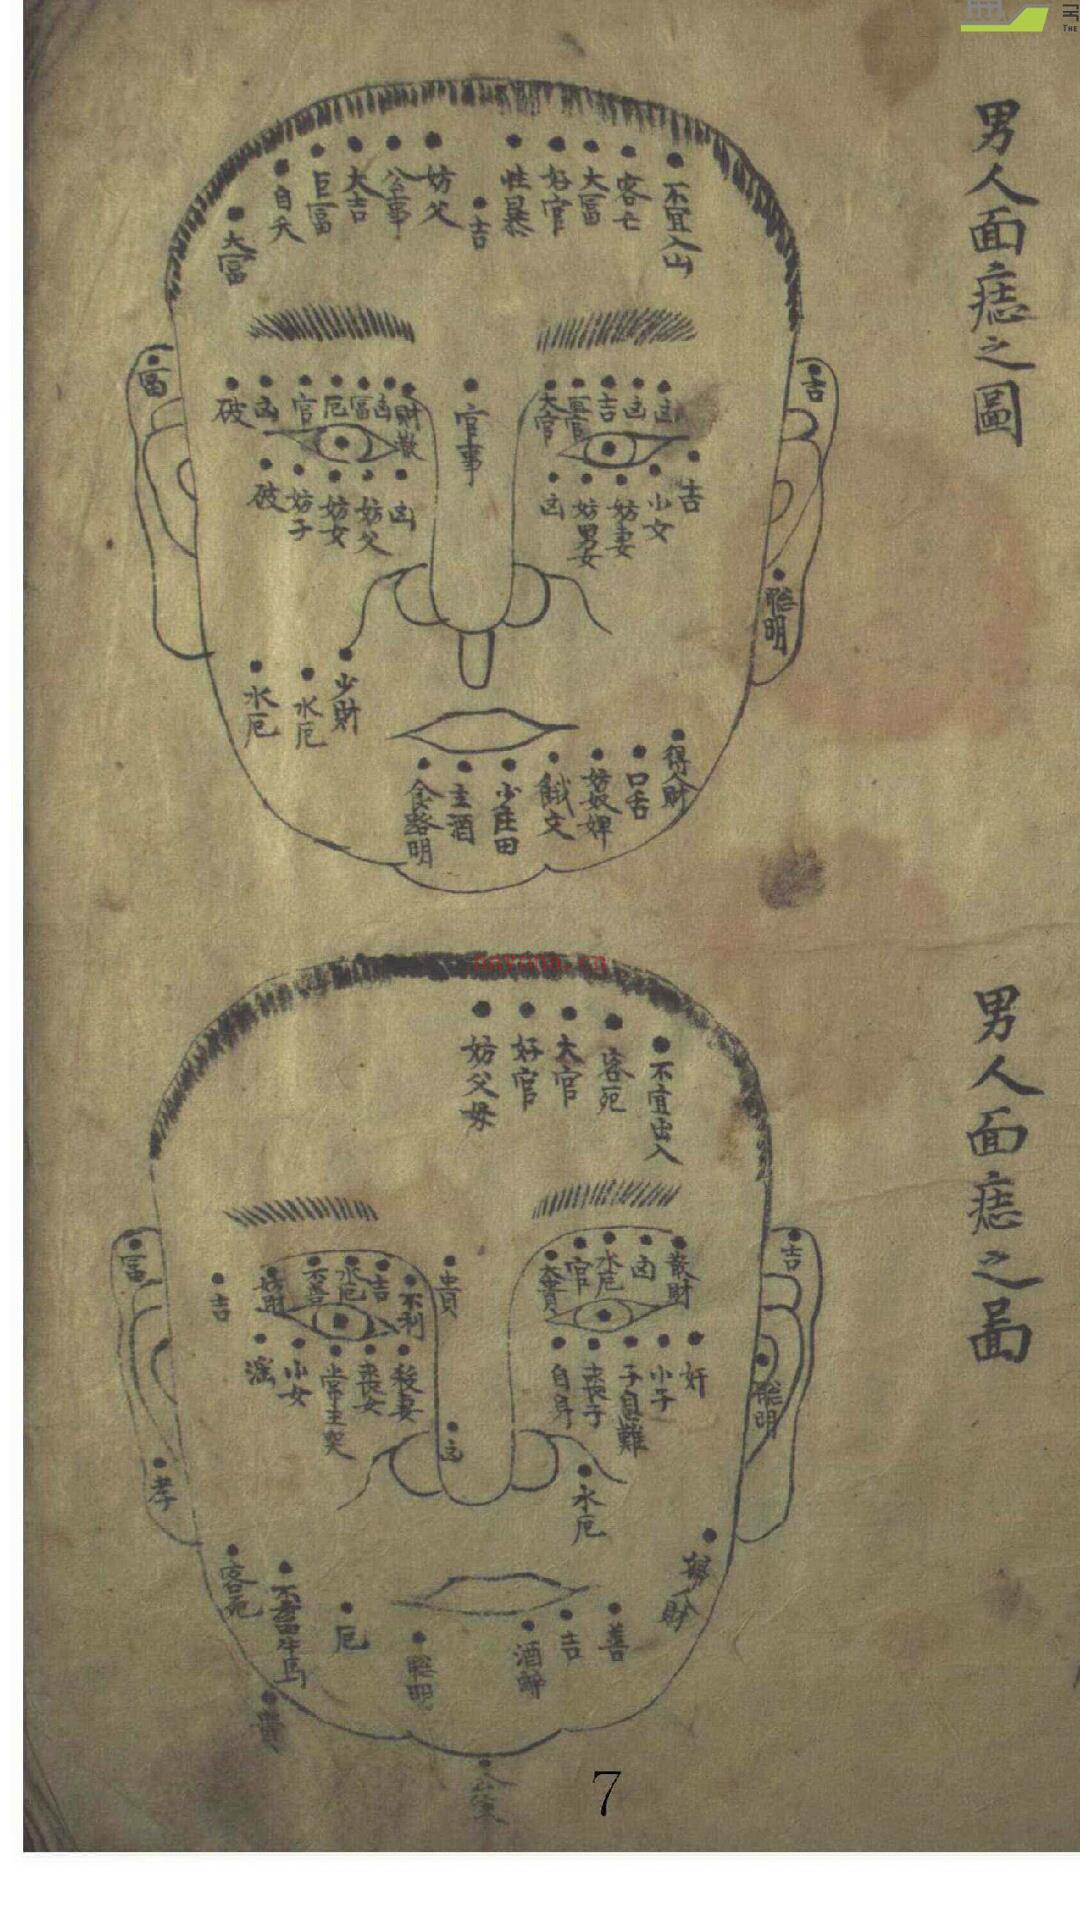 男人面痣之圖
不宜入山
客亡
大富
好官
性暴
吉
妨父
公事
大吉
巨富
自夭
大富
富
吉
凶
凶
吉
大官
官事
財散
凶
富
厄
官
凶
破
吉
小女
妨妻
妨男女
凶
凶
妨父
妨女
妨子
破
聰明
少財
水厄
水厄
得人財
口舌
妨奴婢
少庄田
主酒
男人面痣之圖
不宜出入
客死
大官
好官
妨父母
富
吉
散財
凶
水厄
官
大貴
貴
不利
吉
水厄
不善
妨財
吉
奸
小子
子息難
喪子
自身
殺妻
喪女
常主哭
小女
淫
聰明
凶
孝
水厄
客死
厄
善
吉
聰明
7